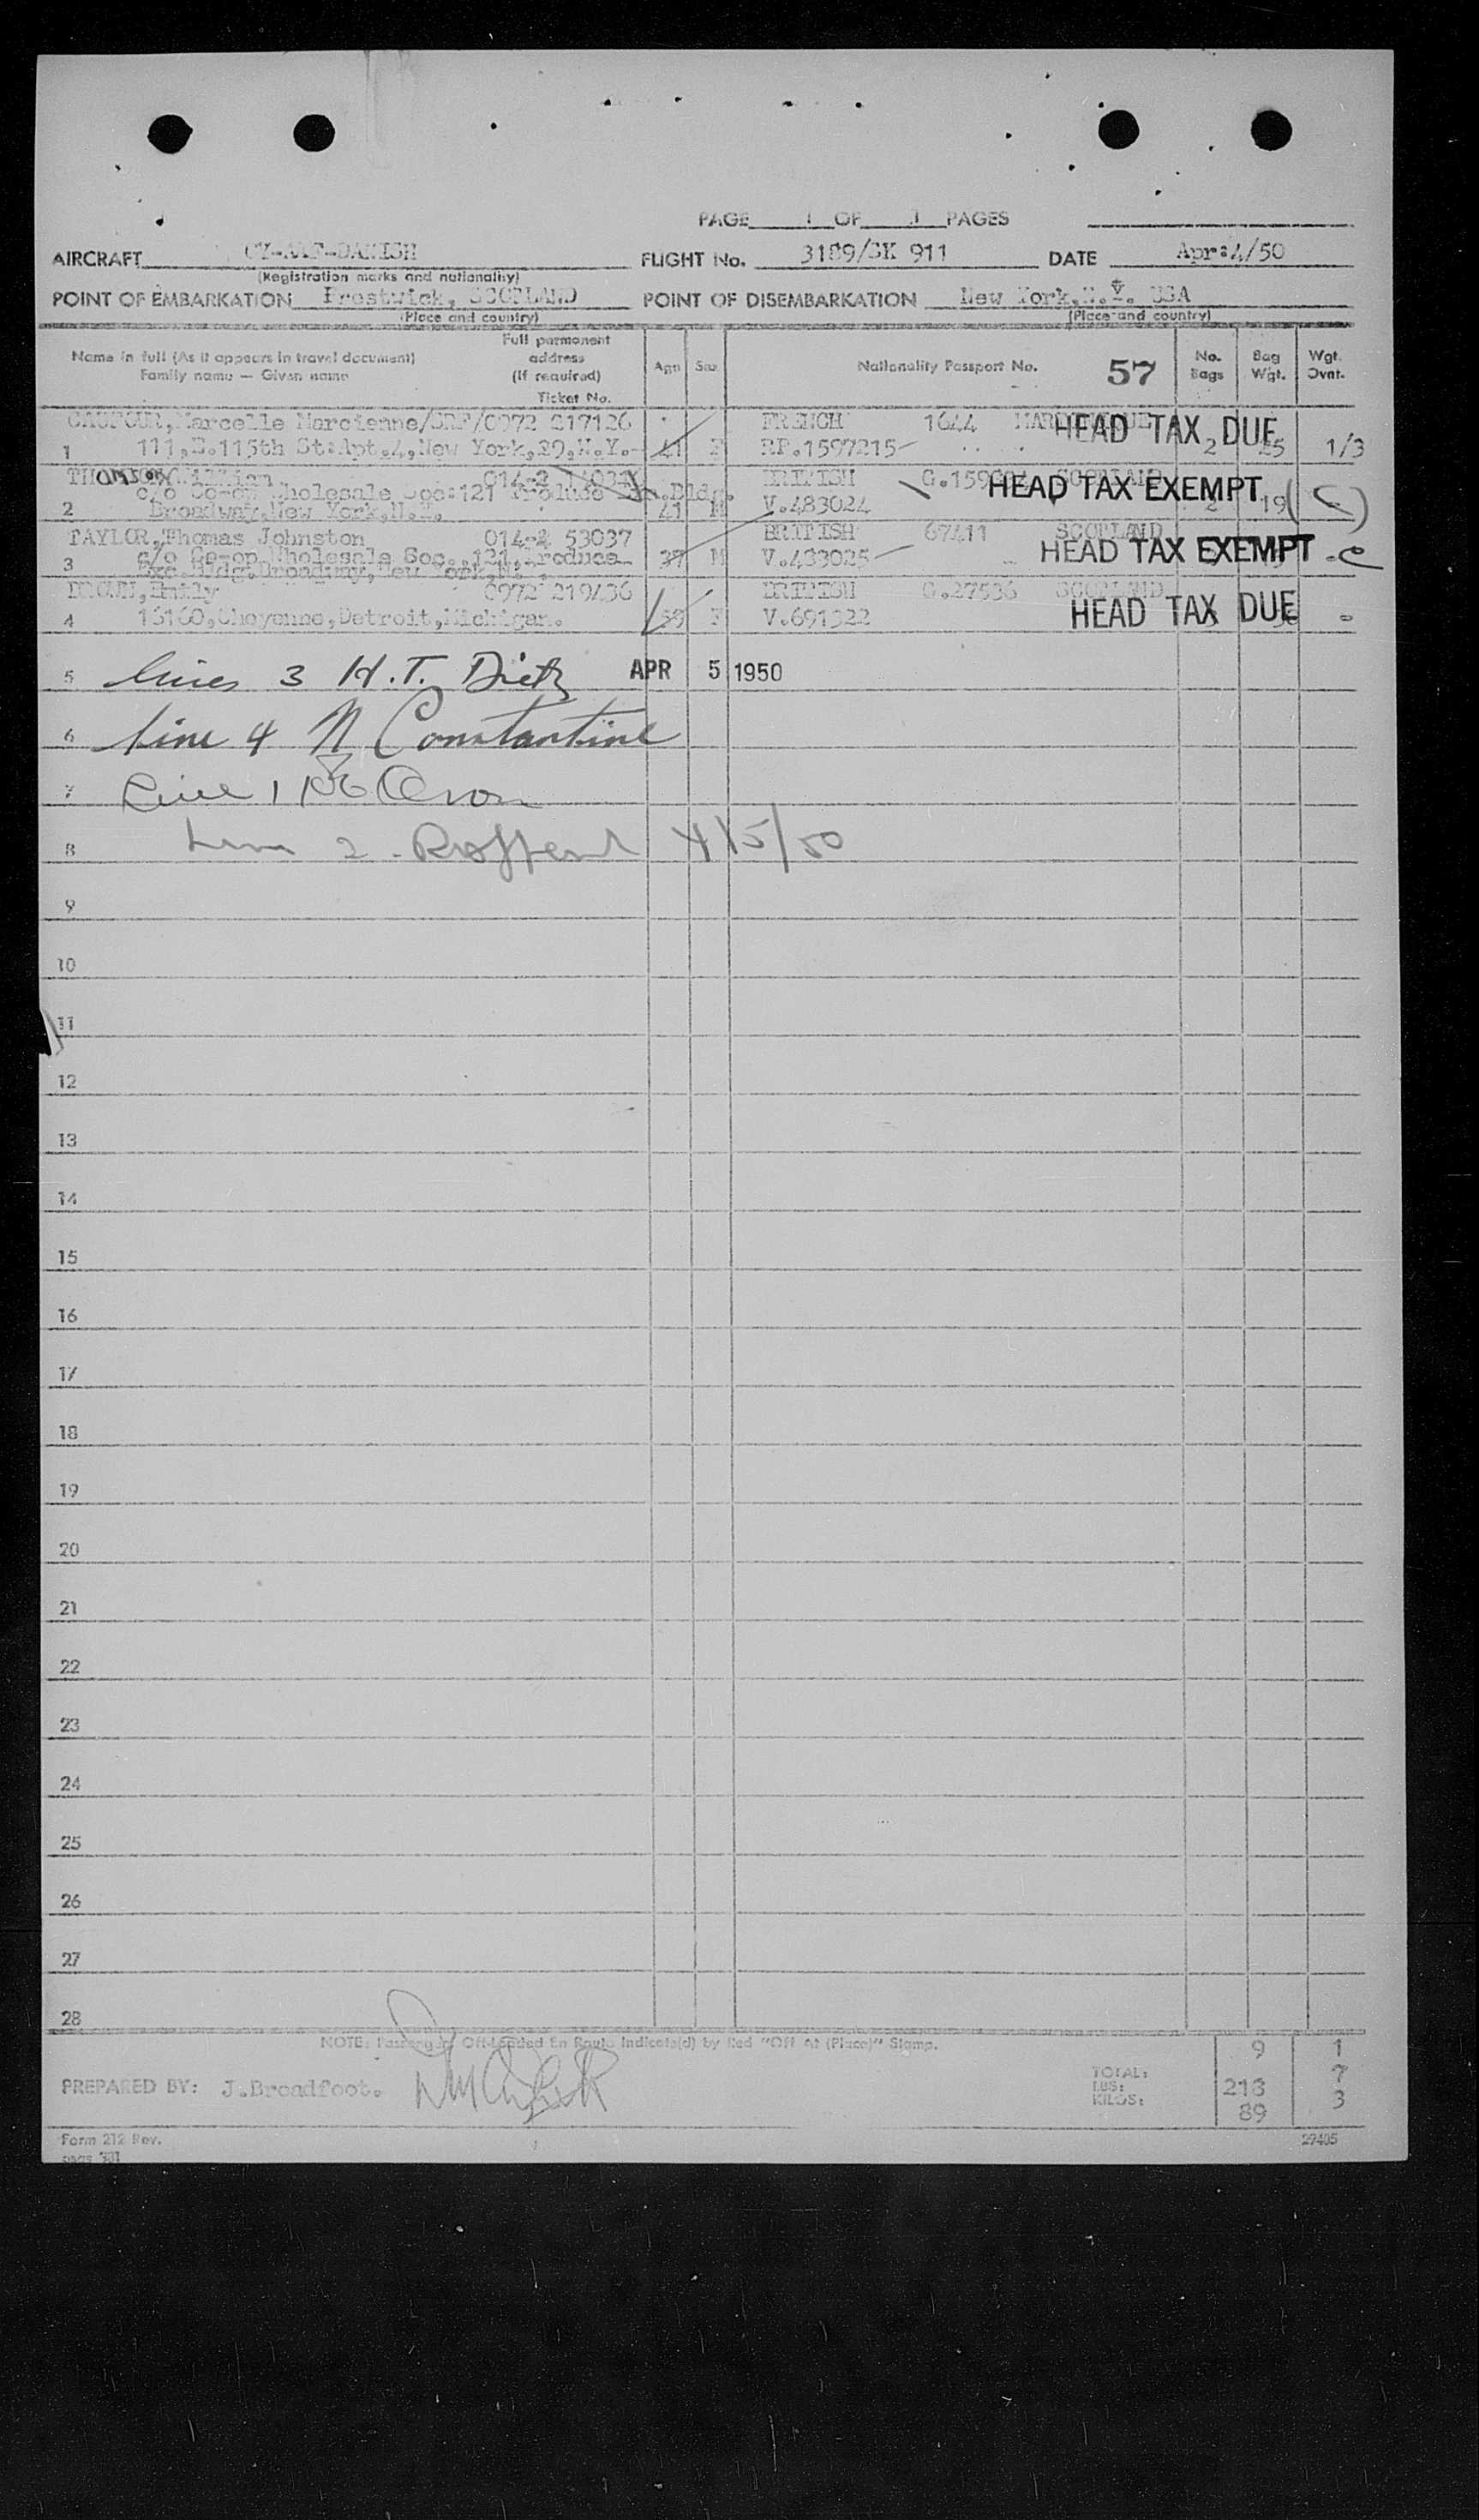 PAGE 1 OF 1 PAGES
AIRCRAFT DANISH FLIGHT No. 3189/SK 911 DATE Apr:4/50
(Registration marks and nationality)
POINT OF EMBARKATION Prestwick, SCOTLAND POINT OF DISEMBARKATION New York, N.Y. USA
(Place and country) (Place and country)
Name in full (As it appears in travel document)
Family name — Given name
Full permanent
address
(If required)
Ticket No.
Age Sex Nationality Passport No. 57 No. Bags Bag Wgt. Wgt. Ovnt.
Marcelle Marcienne 0972 217126 FRENCH 1644 HEAD TAX DUE
1 111,E.115th St:Apt.4,New York,29,N.Y. 41 F RP.1597215 2 1/3
THOMSON, William 014-2 BRITISH SCOTLAND HEAD TAX EXEMPT
c/o Co-op Wholesale Soc:121 Produce Bldg.
2 Broadway,New York,N.Y. 41 M V.483024 2 19
TAYLOR,Thomas Johnston 014-2 53037 BRITISH 67411 SCOTLAND
c/o Co-op Wholesale Soc.,121,Produce HEAD TAX EXEMPT
3 Exc.Bldg.Broadway,New York,N. 39 M V.483025
BROWN,Emily 0972 219436 BRITISH G.27536 SCOTLAND
4 15160,Cheyenne,Detroit,Michigan. 59 F V.691322 HEAD TAX DUE
5 Lines 3 H.T. Dietz APR 5 1950
6 Line 4 N Constantine
7 Line 1
8 Line 2 4/5/50
9
10
11
12
13
14
15
16
17
18
19
20
21
22
23
24
25
26
27
28
NOTE: Passengers Off-Loaded En Route Indicate(d) by Red "Off At (Place)" Stamp.
9 1
TOTAL: 7
PREPARED BY: J.Broadfoot. LBS: 218
KILOS: 89 3
Form 212 Rev. 29405
page 301